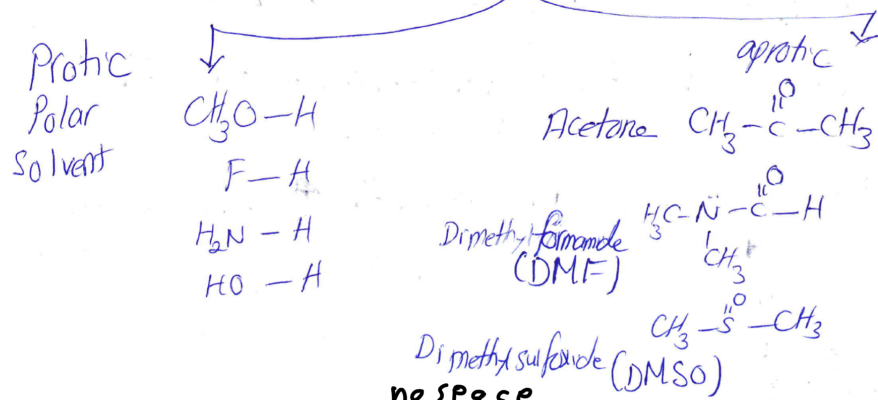 Protic
Polar
Solvent
CH3O-H
F-H
H2N-H
HO-H
aprotic
O
Acetone CH3-C-CH3
O
H3C-N-C-H
CH3
Dimethylformamide
(DMF)
O
CH3-S-CH3
Dimethylsulfoxide (DMSO)
no space